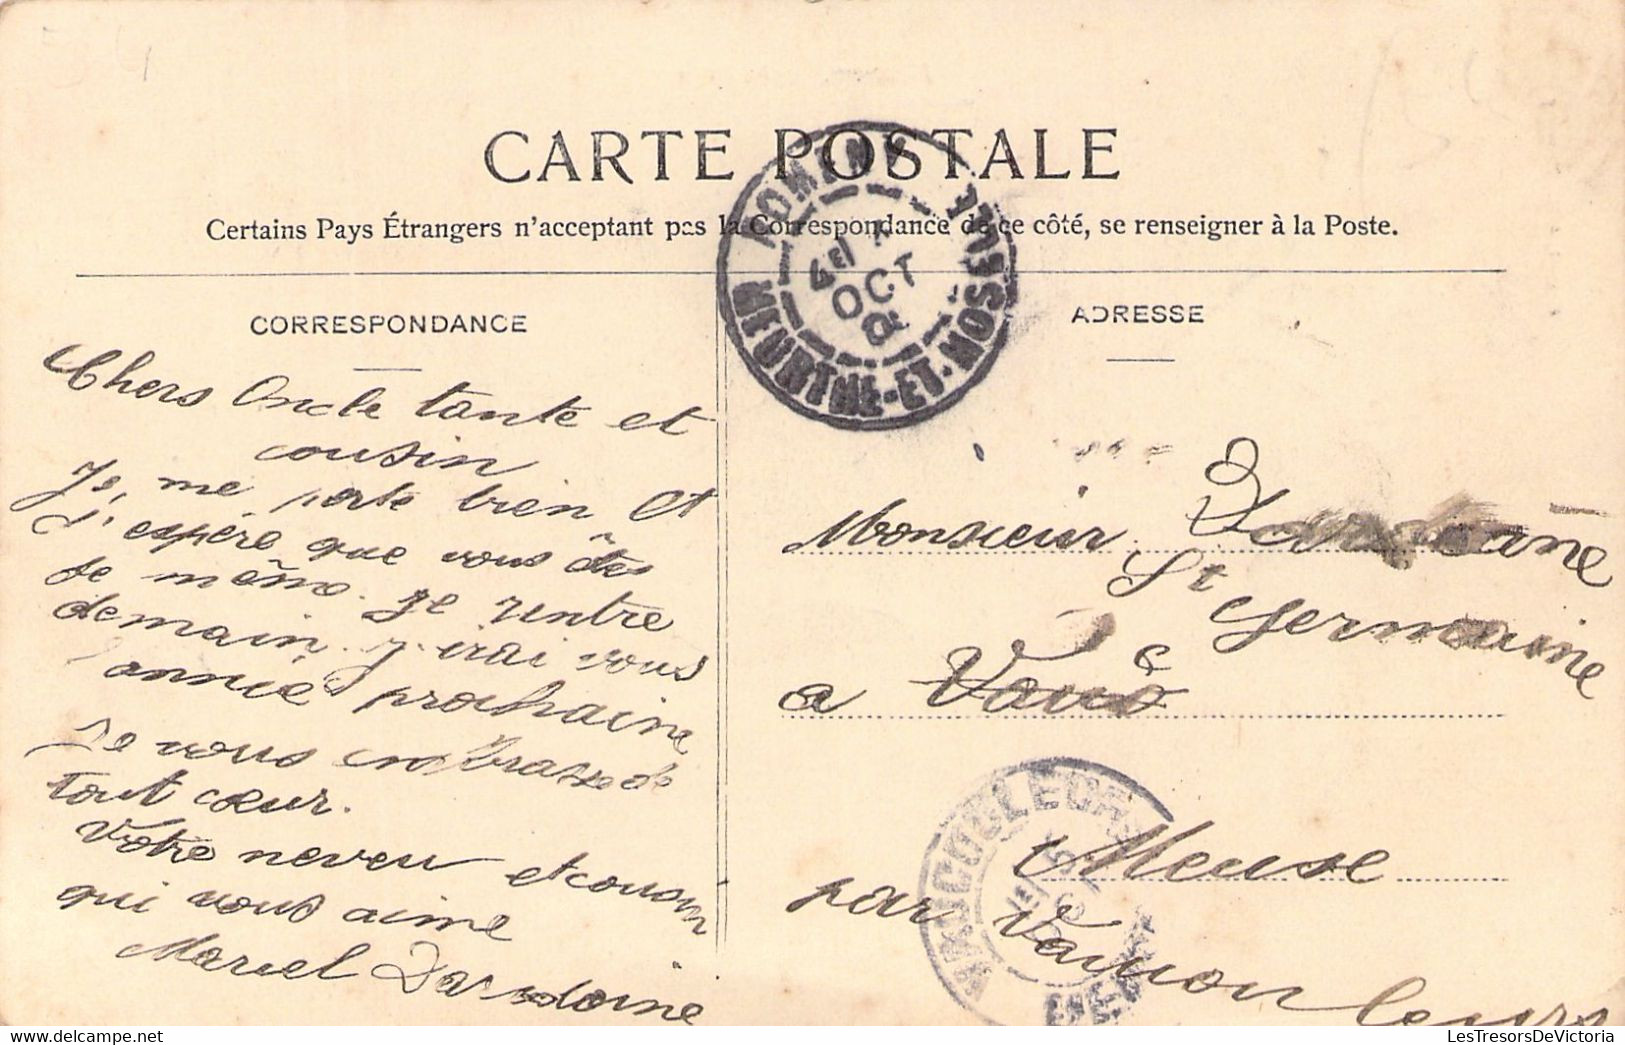 CARTE POSTALE
Certains Pays Étrangers n'acceptent pas la Correspondance de ce côté, se renseigner à la Poste.
CORRESPONDANCE
Chers Oncle tante et
cousin
Je me porte bien et
j'espére que vous êtes
de même. Je rentre
demain. J'irai vous
l'année prochaine
Je vous embrasse de
tout cœur.
Votre neveu et cousin
qui vous aime
Marcel Dardoine
NOMENY
MEURTHE-ET-MOSELLE
4E
OCT
ADRESSE
Monsieur Dardoine
St Germaine
a
Meuse
par Vaucouleurs
VAUCOULEURS
LesTresorsDeVictoria
LesTresorsDeVictoria.delcampe.net